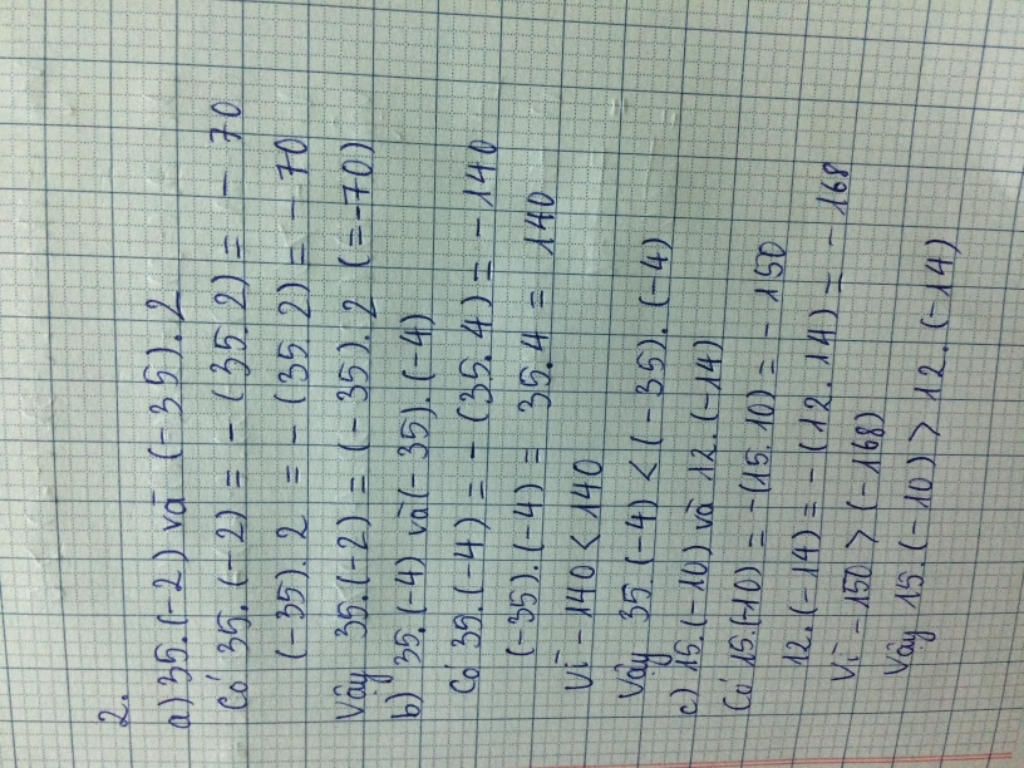 2.
a) 35.(-2) và (-35).2
Có 35.(-2) = -(35.2) = -70
(-35).2 = -(35.2) = -70
Vậy 35.(-2) = (-35).2 (=-70)
b) 35.(-4) và (-35).(-4)
Có 35.(-4) = -(35.4) = -140
(-35).(-4) = 35.4 = 140
Vì -140 < 140
Vậy 35.(-4) < (-35).(-4)
c) 15.(-10) và 12.(-14)
Có 15.(-10) = -(15.10) = -150
12.(-14) = -(12.14) = -168
Vì -150 > (-168)
Vậy 15.(-10) > 12.(-14)